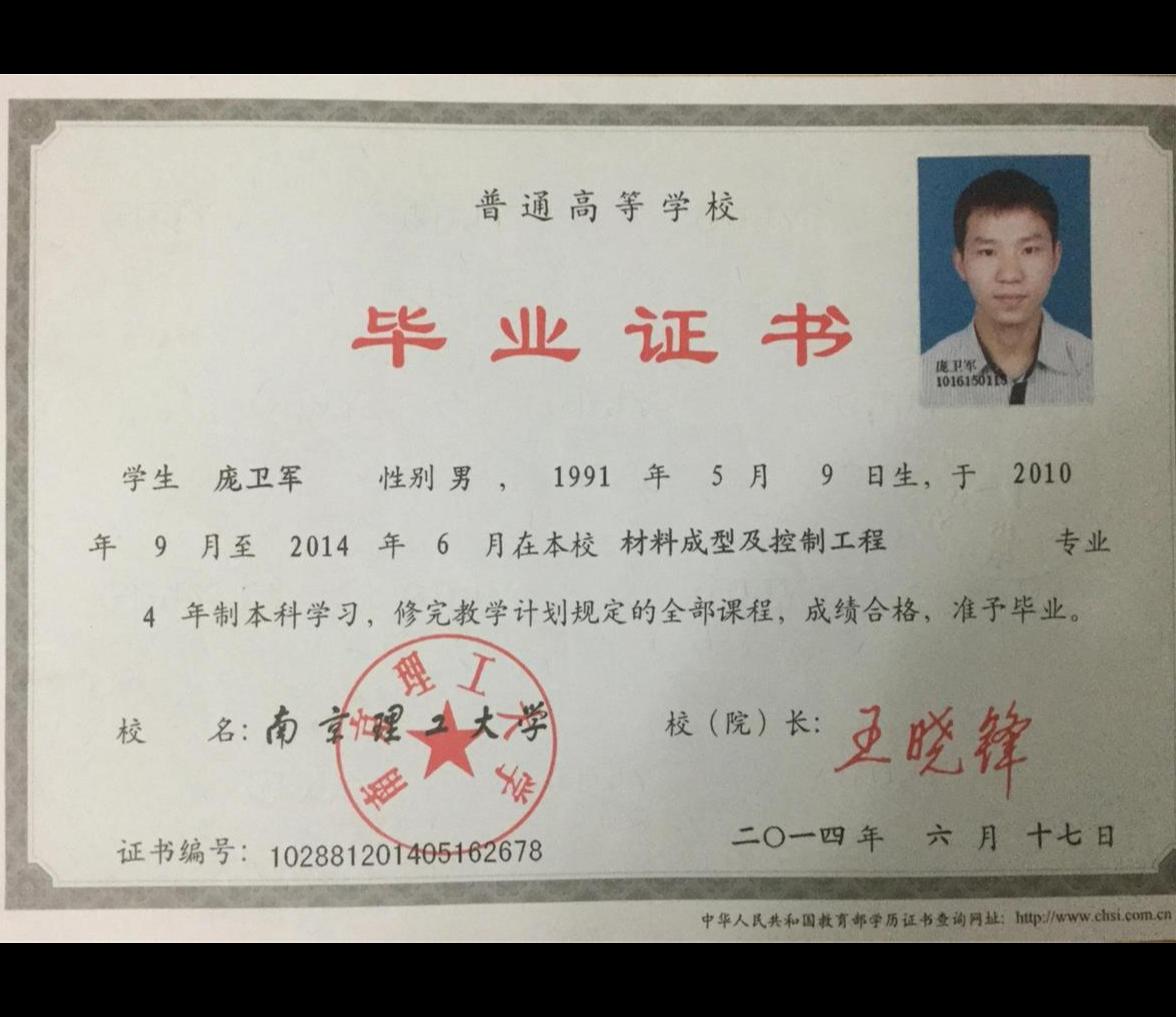 普通高等学校
毕业证书
庞卫军
1016150113
学生 庞卫军 性别 男 ， 1991 年 5 月 9 日生，于 2010
年 9 月至 2014 年 6 月在本校 材料成型及控制工程 专业
4 年制本科学习，修完教学计划规定的全部课程，成绩合格，准予毕业。
校 名：南京理工大学 校（院）长：王晓锋
南京理工大学
证书编号：102881201405162678 二〇一四年 六 月 十七日
中华人民共和国教育部学历证书查询网址：http://www.chsi.com.cn